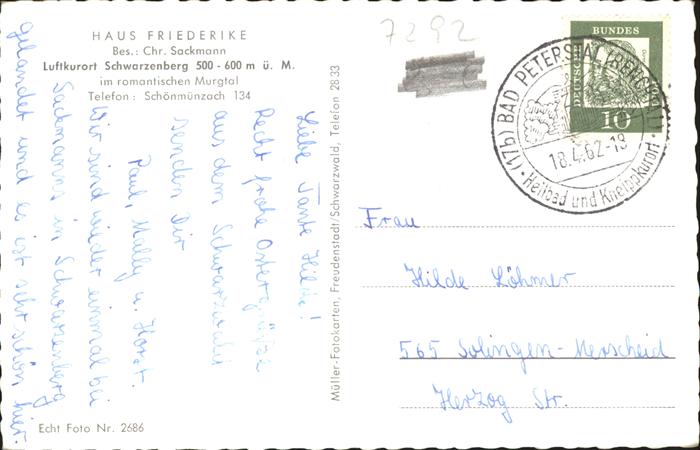 HAUS FRIEDERIKE
Bes.: Chr. Sackmann
Luftkurort Schwarzenberg 500 - 600 m ü. M.
im romantischen Murgtal
Telefon: Schönmünzach 134
7292
BUNDES
DEUTSCHE
10
(17b) BAD PETERSTAL (RENCHTAL)
18.4.62-18
Heilbad und Kneippkurort
Liebe Tante Hilde!
Recht frohe Ostergrüße
aus dem Schwarzwald
senden Dir
Paul, Mally u. Horst.
Wir sind wieder einmal bei
Sackmanns in Schwarzenberg
gelandet und es ist sehr schön hier.
Müller-Fotokarten, Freudenstadt/Schwarzwald, Telefon 2833
Frau
Hilde Löhmer
565 Solingen-Merscheid
Herzog Str.
Echt Foto Nr. 2686